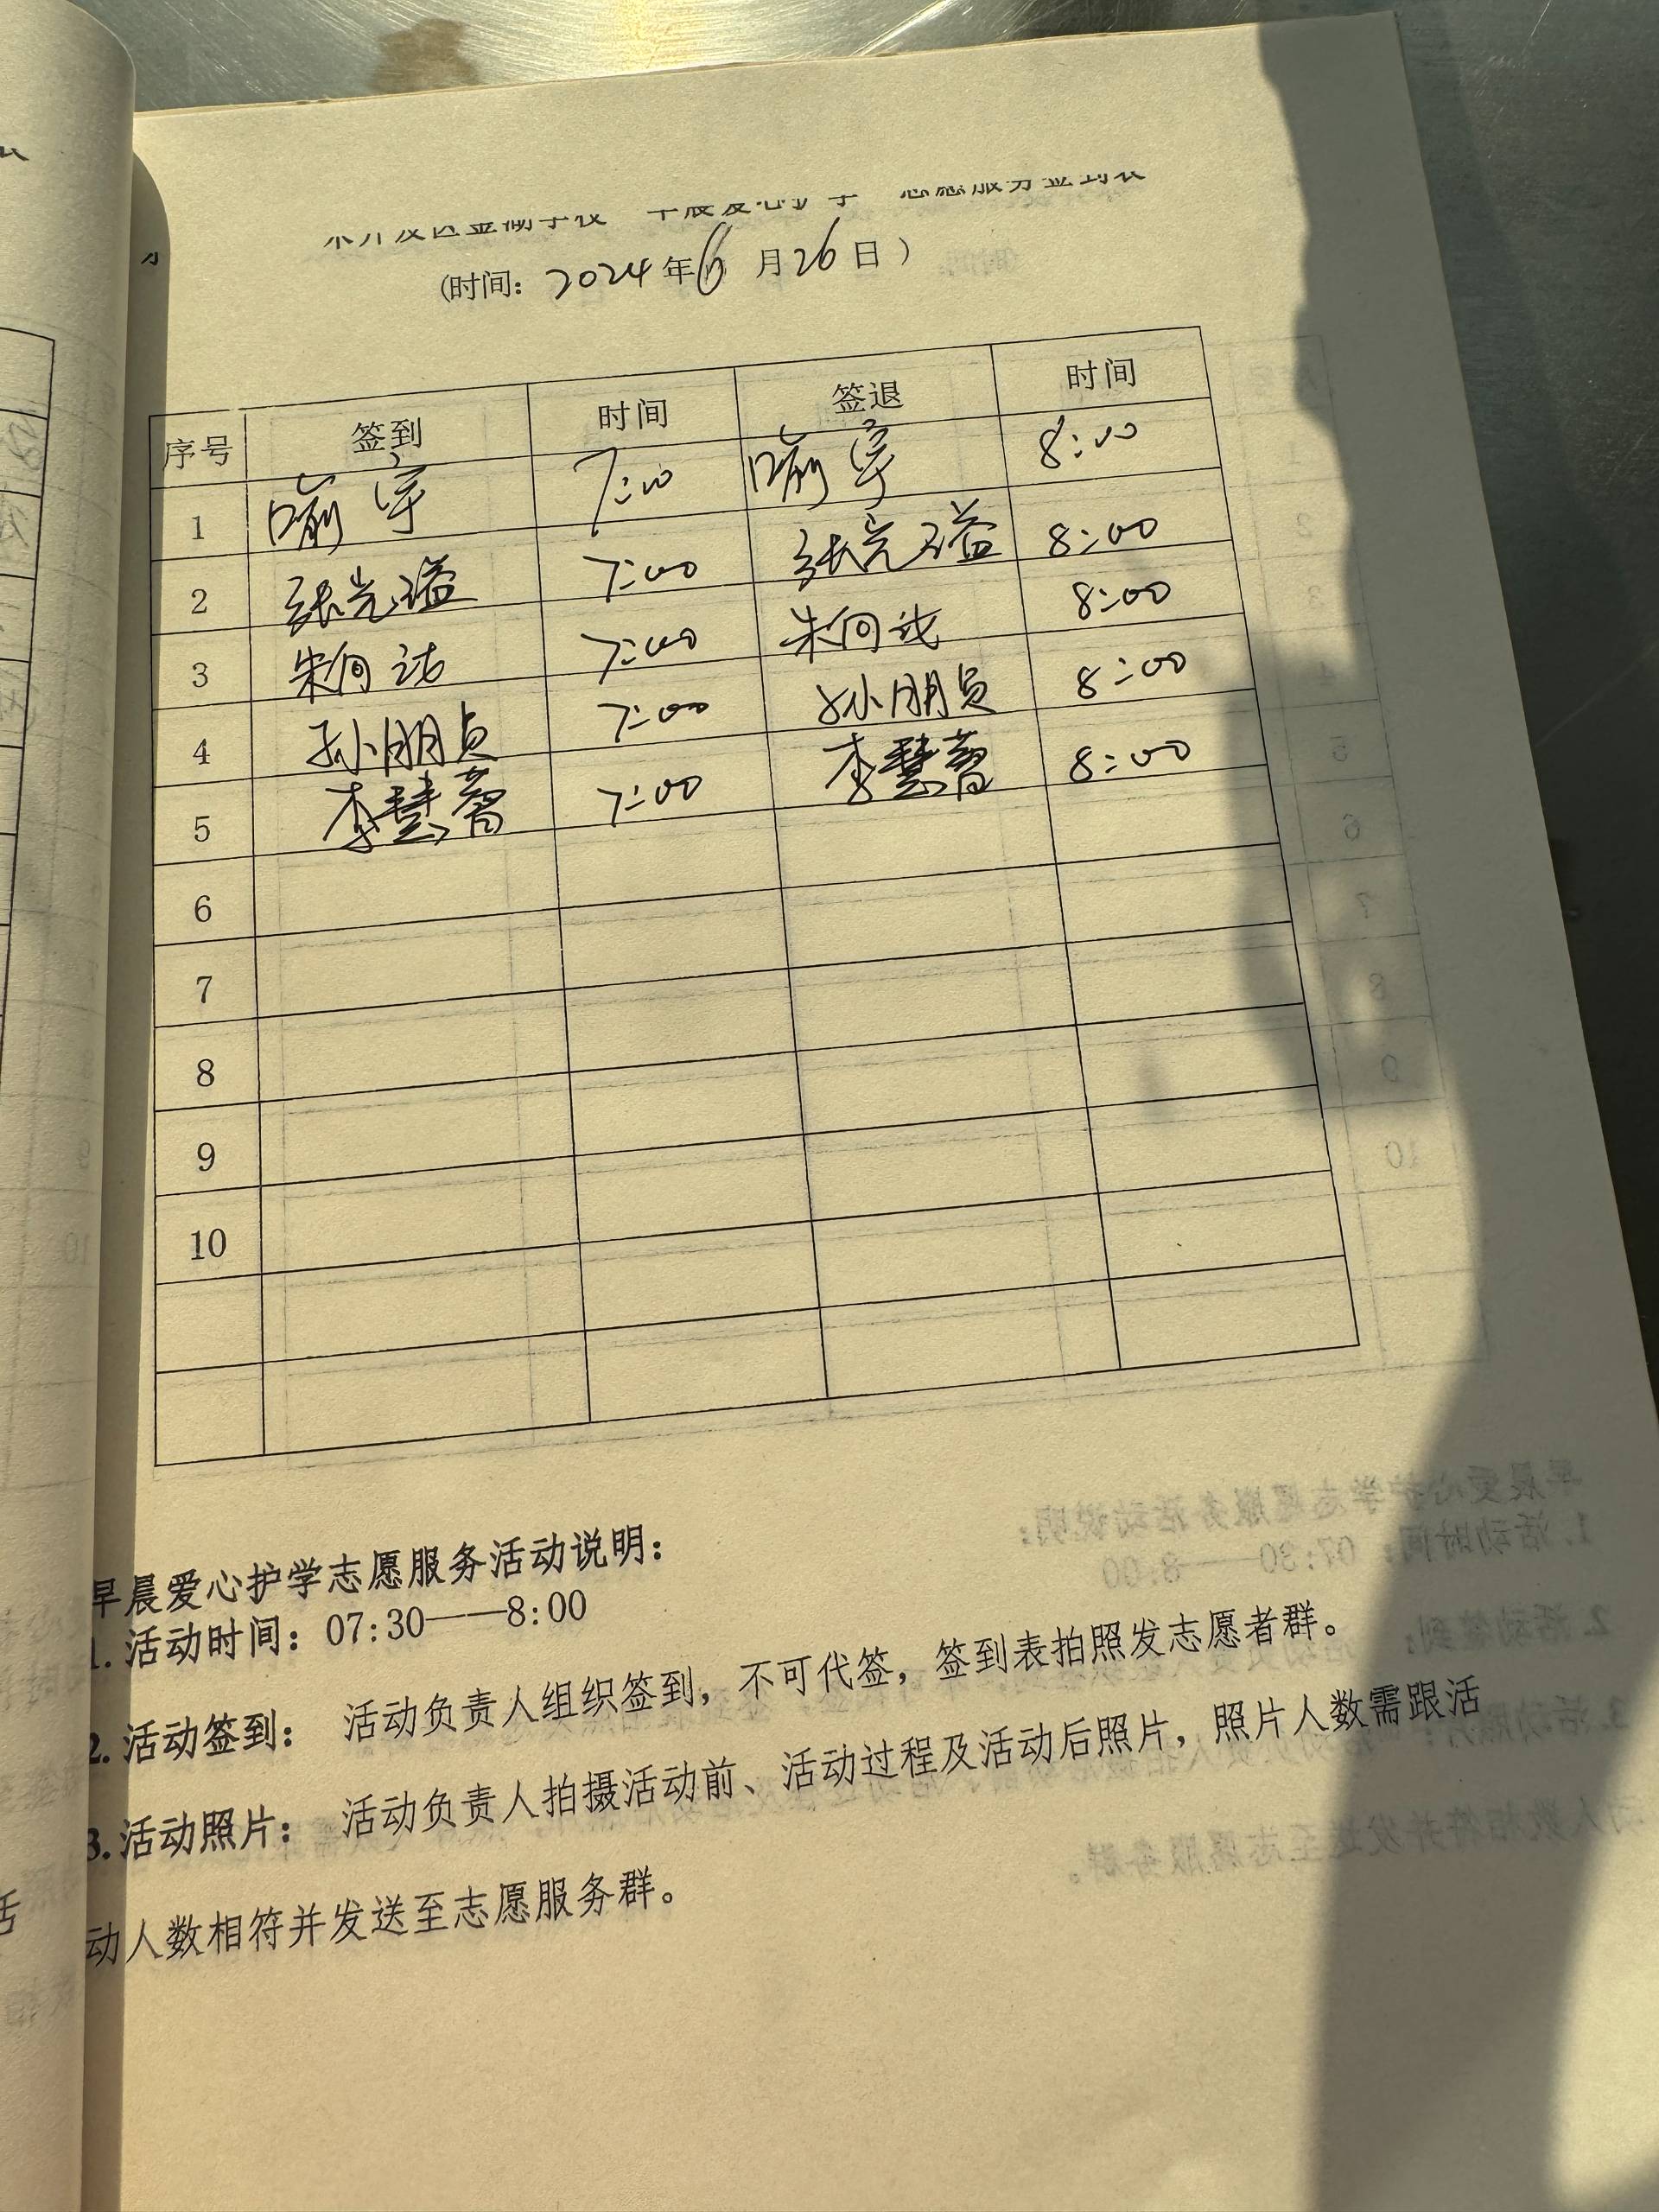 (时间: 2024年6月26日)
序号 签到 时间 签退 时间
1 喻宇 7:00 喻宇 8:00
2 张 7:00 张 8:00
3 朱向 7:00 朱向 8:00
4 孙朋员 7:00 孙朋员 8:00
5 李慧 7:00 李慧 8:00
6
7
8
9
10
早晨爱心护学志愿服务活动说明:
1. 活动时间: 07:30——8:00
2. 活动签到: 活动负责人组织签到, 不可代签, 签到表拍照发志愿者群。
3. 活动照片: 活动负责人拍摄活动前、活动过程及活动后照片, 照片人数需跟活
动人数相符并发送至志愿服务群。